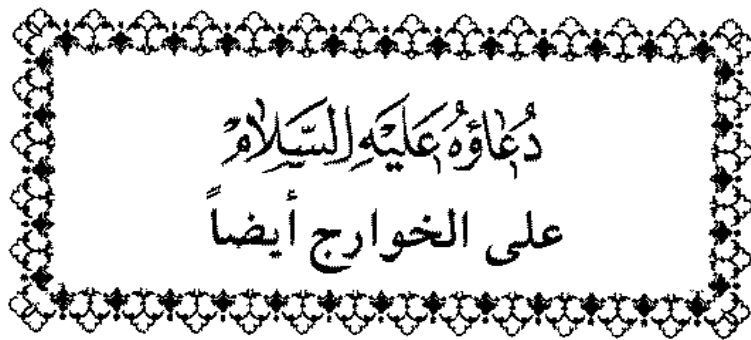 دُعَاؤُهُ عَلَيْهِ السَّلَامُ
على الخوارج أيضاً